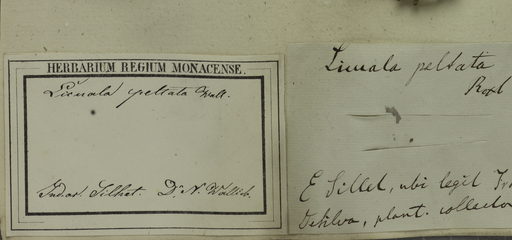 HERBARIUM REGIUM MONACENSE.
Licuala peltata Wall.
Ind. or. Silhet. Dr. N. Wallich.
Licuala peltata
Roxb
E Sillet, ubi legit Fr
plant. collector